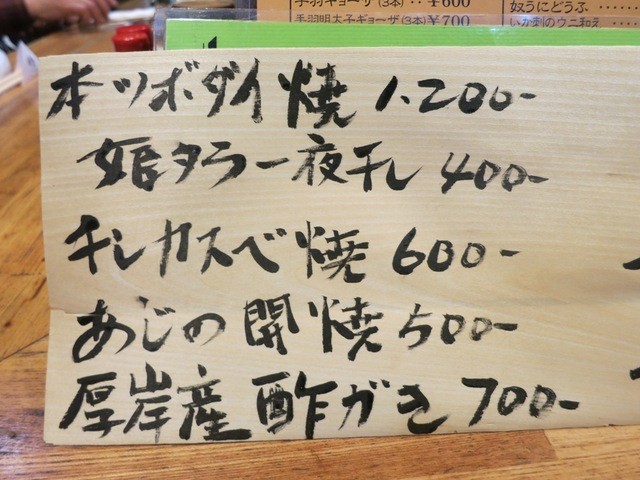 手羽ギョーザ(3本)‥¥600
手羽明太子ギョーザ(3本)¥700
奴うにどうふ
いか刺のウニ和え
本ツボダイ焼 1.200-
姫タラ一夜干し 400-
干しカスベ焼 600-
あじの開焼 500-
厚岸産 酢がき 700-